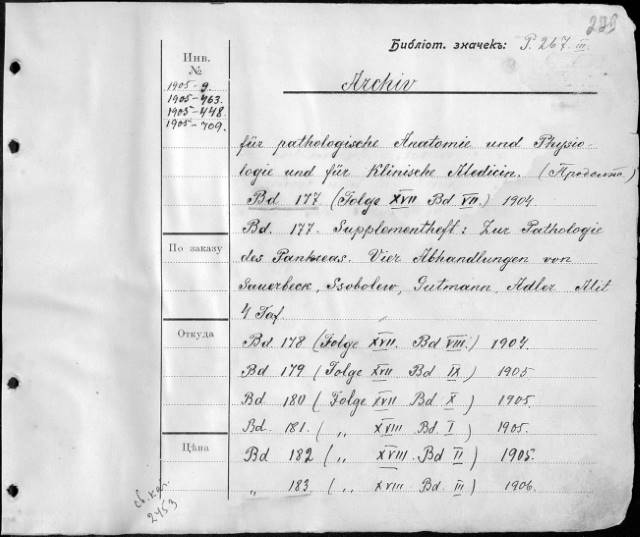 Библіот. значекъ: P. 267. III.
Инв.
№
1905-9.
1905-463.
1905-448.
1905-709.
Archiv
für pathologische Anatomie und Physio-
logie und für Klinische Medicin.
Bd 177 (Folge XVII Bd VII.) 1904.
Bd. 177. Supplementheft: Zur Pathologie
По заказу
des Pankreas. Vier Abhandlungen von
Sauerbeck, Ssobolew, Gutmann, Adler Mit
4 Taf.
Откуда
Bd. 178 (Folge XVII. Bd VIII.) 1904.
Bd 179 (Folge XVII Bd IX) 1905
Bd 180 (Folge XVII Bd. X) 1905.
Bd. 181. (,, XVIII Bd. I) 1905.
Цѣна
Bd 182 (,, XVIII. Bd II) 1905.
,, 183 (,, XVIII Bd. III) 1906.
св. кат.
2453